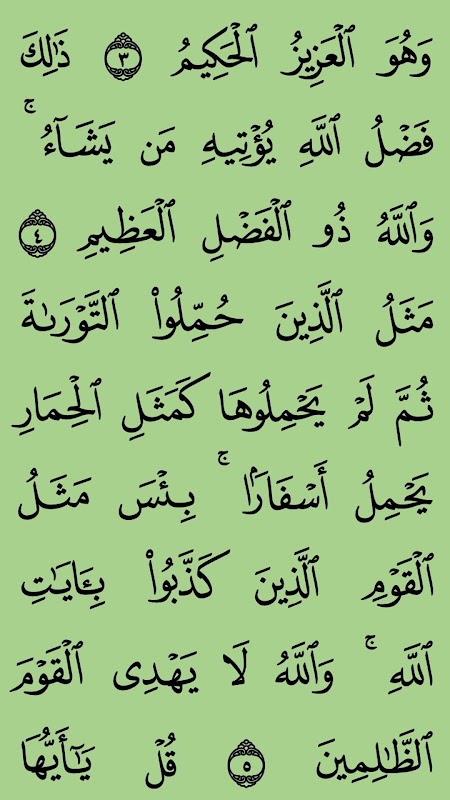 وَهُوَ ٱلْعَزِيزُ ٱلْحَكِيمُ ٣ ذَٰلِكَ
فَضْلُ ٱللَّهِ يُؤْتِيهِ مَن يَشَآءُ ۚ
وَٱللَّهُ ذُو ٱلْفَضْلِ ٱلْعَظِيمِ ٤
مَثَلُ ٱلَّذِينَ حُمِّلُوا۟ ٱلتَّوْرَىٰةَ
ثُمَّ لَمْ يَحْمِلُوهَا كَمَثَلِ ٱلْحِمَارِ
يَحْمِلُ أَسْفَارًۢا ۚ بِئْسَ مَثَلُ
ٱلْقَوْمِ ٱلَّذِينَ كَذَّبُوا۟ بِـَٔايَـٰتِ
ٱللَّهِ ۚ وَٱللَّهُ لَا يَهْدِى ٱلْقَوْمَ
ٱلظَّـٰلِمِينَ ٥ قُلْ يَـٰٓأَيُّهَا